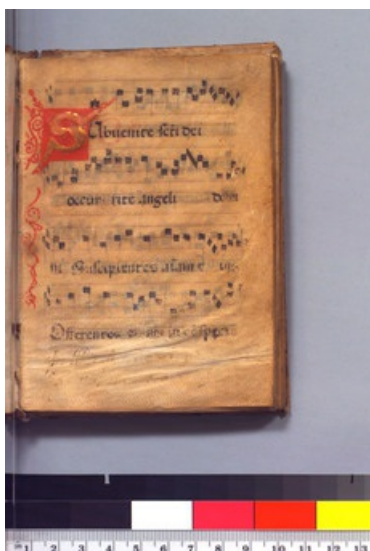 Subuenite sc̄ti dei
occurrite angeli domi
ni Suscipientes a͞iam e ius
Offerentes eam in cōspectu
1 2 3 4 5 6 7 8 9 10 11 12 13